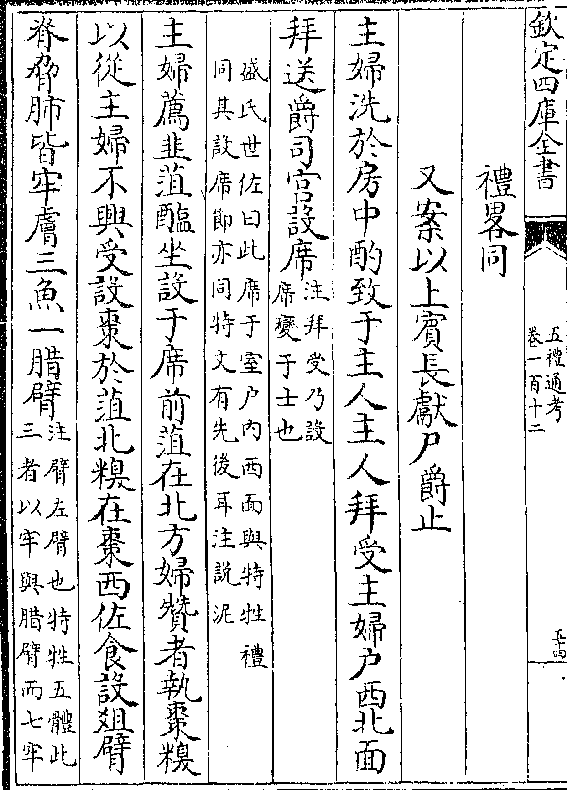 欽定四庫全書
五禮通考
卷一百十二
五十四
禮畧同
又案以上賓長獻尸爵止
主婦洗於房中酌致于主人主人拜受主婦户西北面
拜送爵司宫設席
注拜受乃設
席變于士也
盛氏世佐曰此席于室户内西面與特牲禮
同其設席節亦同特文有先後耳注説泥
主婦薦韭菹醢坐設于席前菹在北方婦贊者執棗糗
以從主婦不興受設棗於菹北糗在棗西佐食設俎臂
脊脅肺皆牢膚三魚一腊臂
注臂左臂也特牲五體此
三者以牢與腊臂而七牢